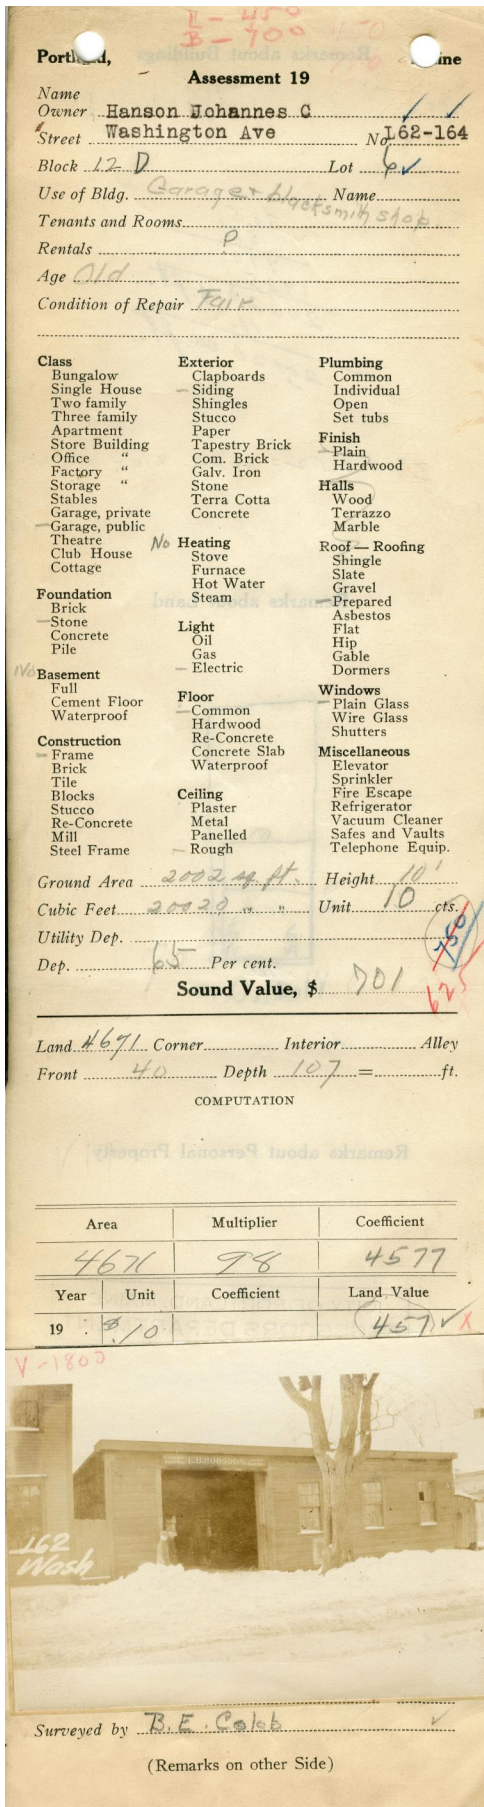 L - 450
B - 700
Portland, Maine
Assessment 19
Name
Owner Hanson Johannes C
Street Washington Ave No 162-164
Block 12 D Lot 6
Use of Bldg. Garage & blacksmith shop Name
Tenants and Rooms
Rentals P
Age Old
Condition of Repair Fair
Class
Bungalow
Single House
Two family
Three family
Apartment
Store Building
Office "
Factory "
Storage "
Stables
Garage, private
Garage, public
Theatre
Club House
Cottage
Foundation
Brick
Stone
Concrete
Pile
No Basement
Full
Cement Floor
Waterproof
Construction
Frame
Brick
Tile
Blocks
Stucco
Re-Concrete
Mill
Steel Frame
Exterior
Clapboards
Siding
Shingles
Stucco
Paper
Tapestry Brick
Com. Brick
Galv. Iron
Stone
Terra Cotta
Concrete
No Heating
Stove
Furnace
Hot Water
Steam
Light
Oil
Gas
Electric
Floor
Common
Hardwood
Re-Concrete
Concrete Slab
Waterproof
Ceiling
Plaster
Metal
Panelled
Rough
Plumbing
Common
Individual
Open
Set tubs
Finish
Plain
Hardwood
Halls
Wood
Terrazzo
Marble
Roof — Roofing
Shingle
Slate
Gravel
Prepared
Asbestos
Flat
Hip
Gable
Dormers
Windows
Plain Glass
Wire Glass
Shutters
Miscellaneous
Elevator
Sprinkler
Fire Escape
Refrigerator
Vacuum Cleaner
Safes and Vaults
Telephone Equip.
Ground Area 2002 sq. ft. Height 10'
Cubic Feet 20020 " " Unit 10 cts.
Utility Dep. 750
Dep. 65 Per cent. 625
Sound Value, $ 701
Land 4671 Corner Interior Alley
Front 40 Depth 107 = ft.
COMPUTATION
Area Multiplier Coefficient
4671 98 4577
Year Unit Coefficient Land Value
19 $.10 457 X
V-1800
162
Wash
Surveyed by B. E. Colob
(Remarks on other Side)